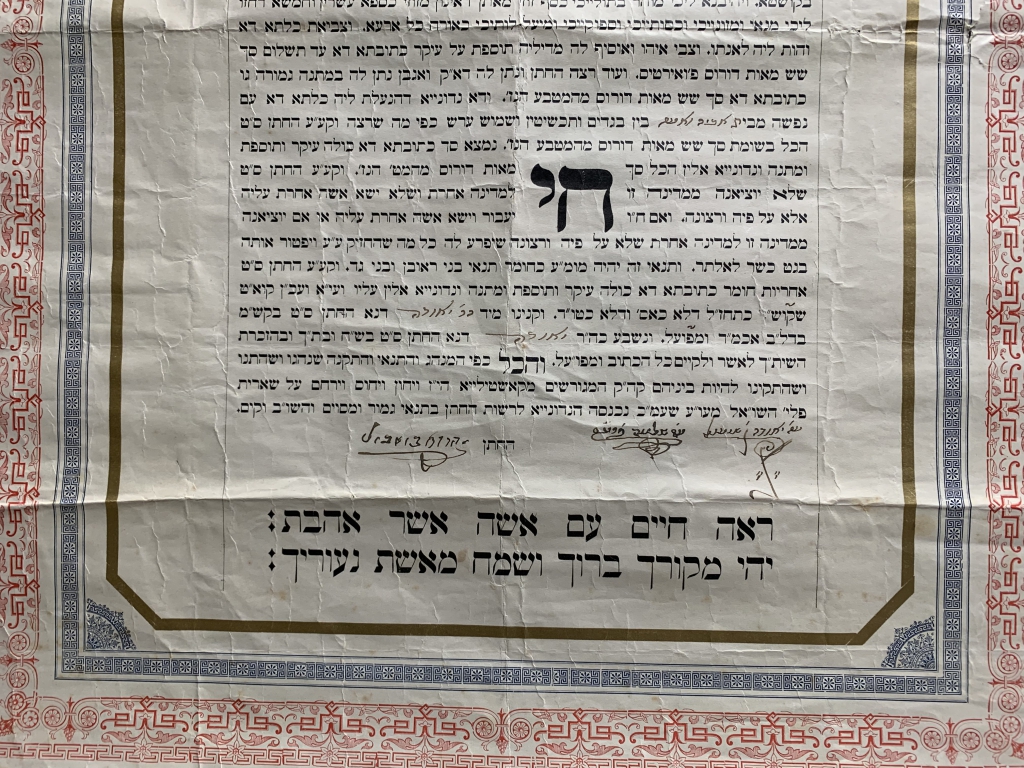 ליכי מנאי ומזוניכי וכסותיכי וספוקיכי ומיעל לותיכי כאורח כל ארעא. וצביאת כלתא דא
והות ליה לאנתו. וצבי איהו ואוסיף לה מדיליה תוספת על עיקר כתובתא דא עד תשלום סך
שש מאות דורוס פ׳ואירטיס. ועוד רצה החתן ונתן לה דא״ק ואגבן נתן לה במתנה גמורה גו
כתובתא דא סך שש מאות דורוס מהמטבע הנז׳. ודא נדונייא דהנעלת ליה כלתא דא עם
נפשה מבית בין בגדים ותכשיטין ושמוש ערש כפי מה שרצה וקע״ע החתן ס״ט
הכל בשומת סך שש מאות דורוס מהמטבע הנז׳. נמצא סך כתובתא דא כולה עיקר ותוספת
ומתנה ונדונייא אלין הכל סך חי מאות דורוס מהמט׳ הנז׳. וקע״ע החתן ס״ט
שלא יוציאנה ממדינה זו למדינה אחרת ושלא ישא אשה אחרת עליה
אלא על פיה ורצונה. ואם ח״ו יעבור וישא אשה אחרת עליה או אם יוציאנה
ממדינה זו למדינה אחרת שלא על פיה ורצונה שיפרע לה כל מה שהחזיק ע״ע ויפטור אותה
בגט כשר לאלתר. ותנאי זה יהיה מומ״ע כחומר תנאי בני ראובן ובני גד. וקע״ע החתן ס״ט
אחריות חומר כתובתא דא כולה עיקר ותוספת ומתנה ונדונייא אלין עליו ועי״א ועב״ן קוא״ט
שקו״ש כתחז״ל דלא כאס׳ ודלא כטו״ד. וקנינו מיד דנא החתן ס״ט בקש״מ
בדל״ב אכמ״ד ומפ׳ועל. ונשבע כה״ר דנא החתן ס״ט בש״ח ובת״ך ובהזכרת
השית״ך לאשר ולקיים כל הכתוב ומפי׳ על. והכל כפי המנהג והתנאי והתקנה שנהגו ושהתנו
ושהתקינו להיות ביניהם קה״ק המגורשים מקאשטילייא הי״ז ויחון ויחוס וירחם על שארית
פלי׳ השו״אל מעו״ע שעמ״כ נכנסה הנדונייא לרשות החתן בתנאי גמור ומסוים והשו״ב וקים.
החתן
ראה חיים עם אשה אשר אהבת:
יהי מקורך ברוך ושמח מאשת נעוריך: